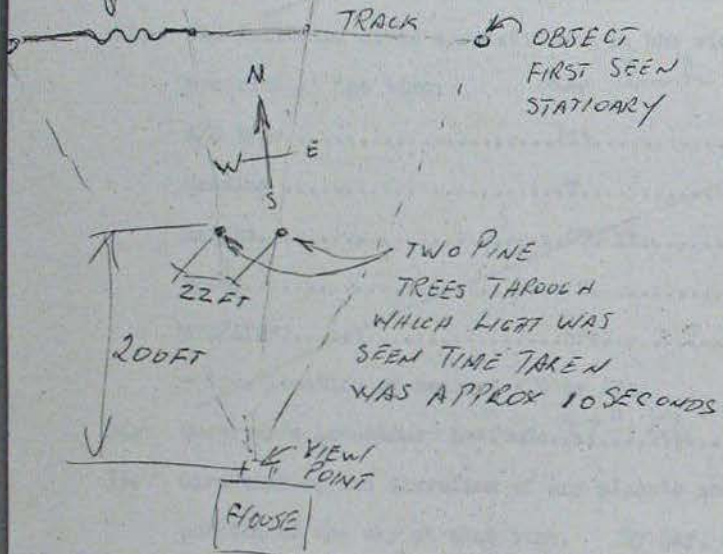 TRACK
OBJECT
FIRST SEEN
STATIOARY
N
W
E
S
TWO PINE
TREES THROUGH
WHICH LIGHT WAS
SEEN TIME TAKEN
WAS APPROX 10 SECONDS
22 FT
200FT
VIEW
POINT
HOUSE